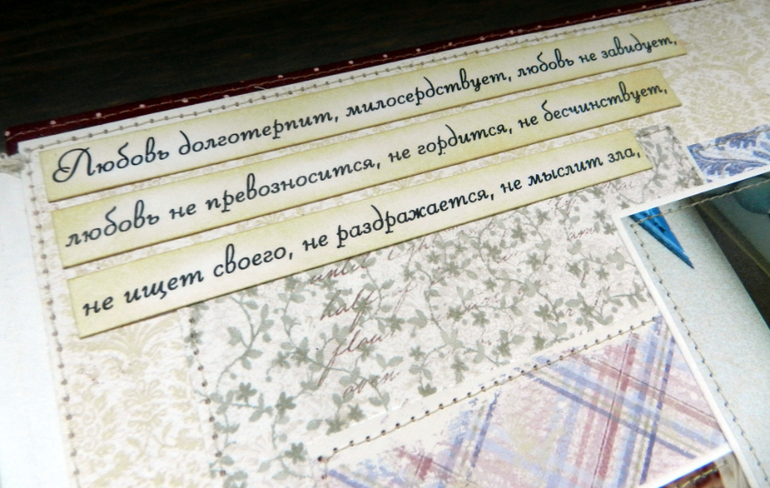 Любовь долготерпит, милосердствует, любовь не завидует,
любовь не превозносится, не гордится, не бесчинствует,
не ищет своего, не раздражается, не мыслит зла,